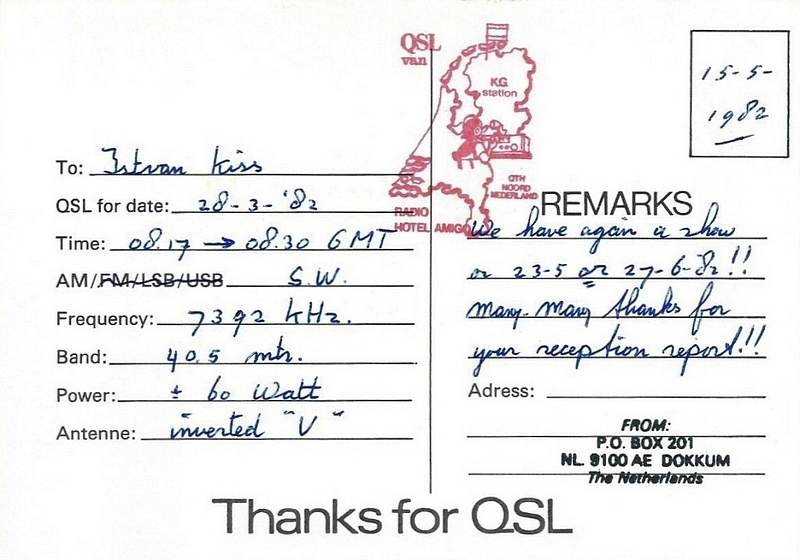 QSL
van
K.G.
station
QTH
NOORD
NEDERLAND
RADIO
HOTEL AMIGO
15-5-
1982
To: Istvan Kiss
QSL for date: 28-3-'82
Time: 08.17 → 08.30 GMT
AM/FM/LSB/USB S.W.
Frequency: 7392 kHz.
Band: 40.5 mtr.
Power: ± 60 Watt
Antenne: inverted "V"
REMARKS
We have again a show
or 23-5 or 27-6-82!!
Many-Many thanks for
your reception report!!
Adress:
FROM:
P.O. BOX 201
NL. 9100 AE DOKKUM
The Netherlands
Thanks for QSL